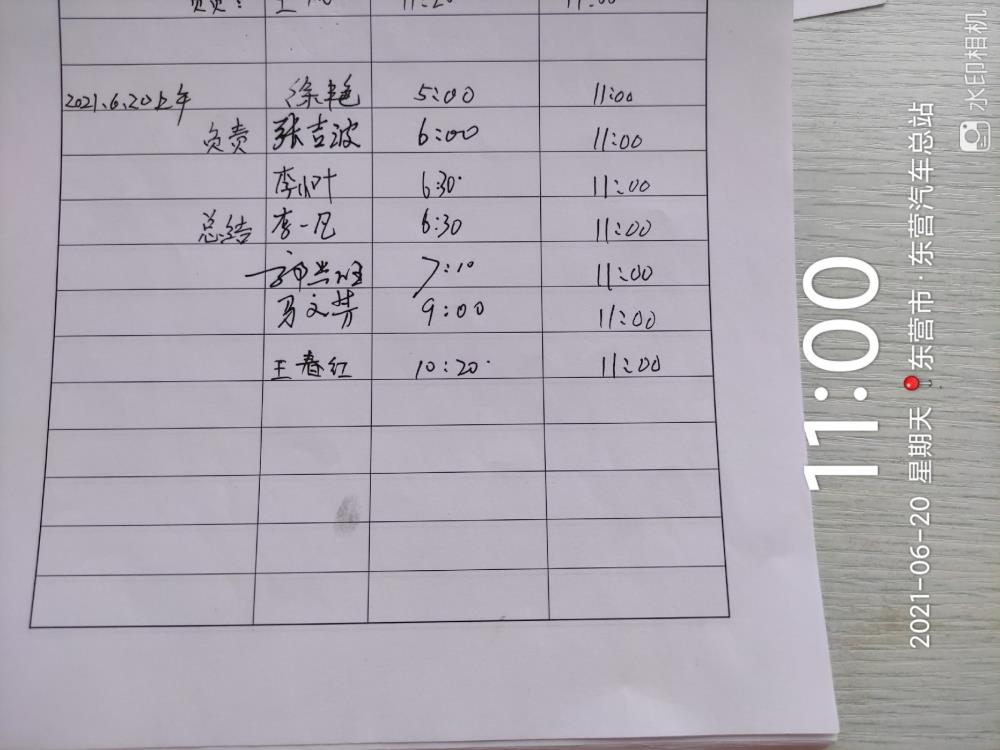 负责: 王 11:20 11:00
2021.6.20上午 徐艳 5:00 11:00
负责 张吉波 6:00 11:00
李小叶 6:30 11:00
总结 李一凡 6:30 11:00
7:10 11:00
马文芳 9:00 11:00
王春红 10:20 11:00
11:00
2021-06-20 星期天 东营市·东营汽车总站
水印相机